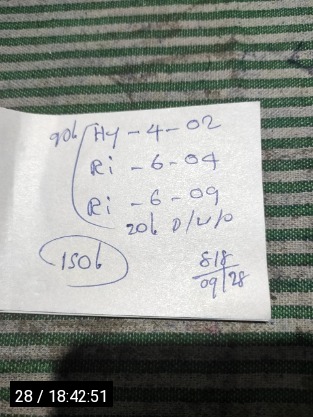 90b Hy-4-02
Ri-6-04
Ri-6-09
20b D/W/D
150b
818
09/28
28 / 18:42:51